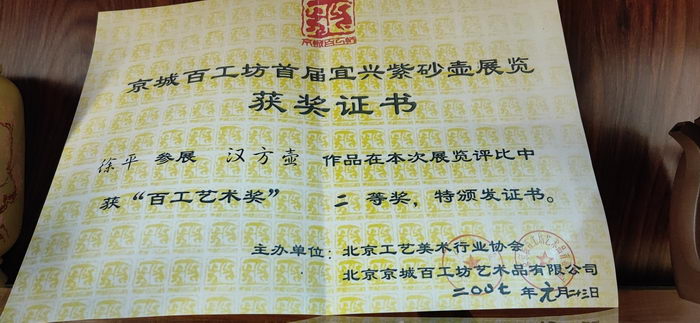 京城百工坊
京城百工坊首届宜兴紫砂壶展览
获奖证书
徐平 参展 汉方壶 作品在本次展览评比中
获“百工艺术奖” 二 等奖，特颁发证书。
主办单位：北京工艺美术行业协会
北京京城百工坊艺术品有限公司
二00七 年 元月二十三日